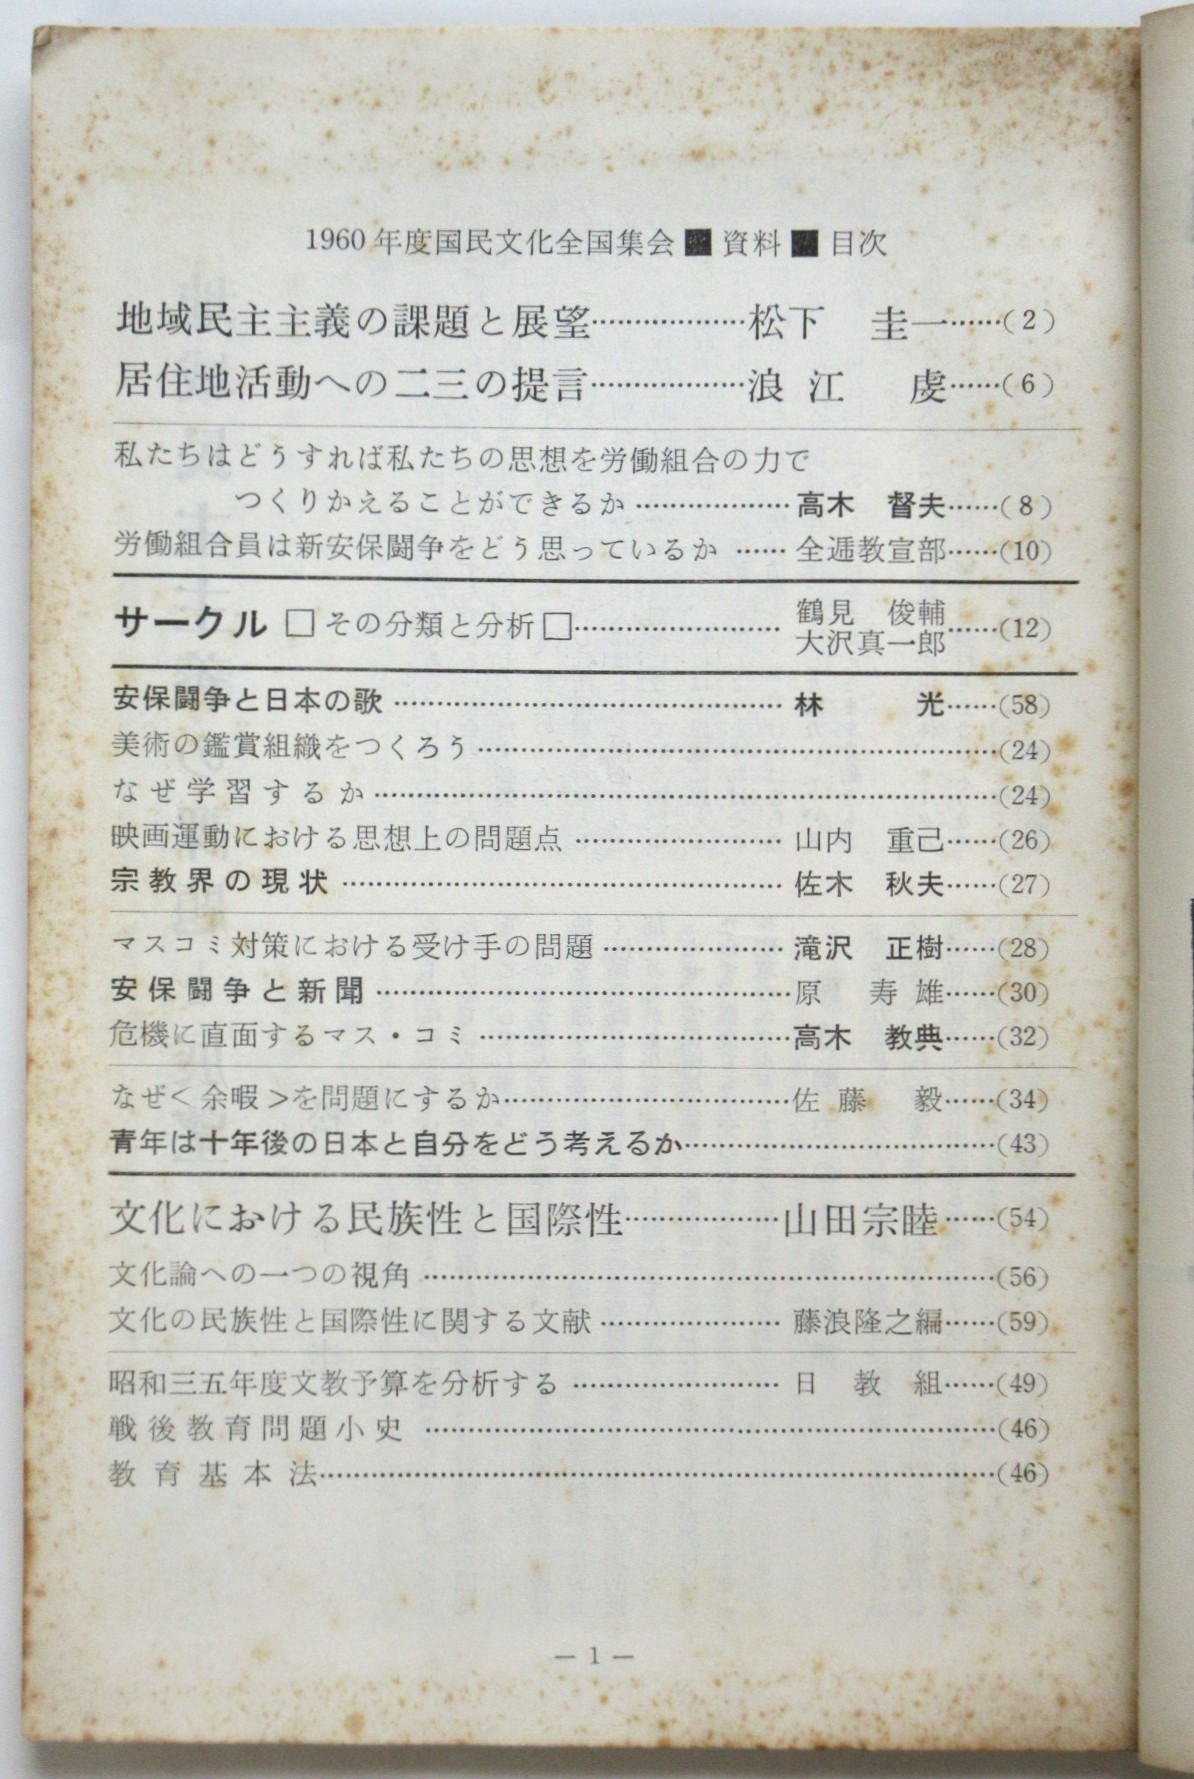 1960年度国民文化全国集会■資料■目次
地域民主主義の課題と展望………………松下　圭一……(2)
居住地活動への二三の提言………………浪江　虔……(6)
私たちはどうすれば私たちの思想を労働組合の力で
つくりかえることができるか………………高木　督夫……(8)
労働組合員は新安保闘争をどう思っているか……全逓教宣部……(10)
サークル □その分類と分析□……………………鶴見　俊輔
大沢真一郎……(12)
安保闘争と日本の歌……………………………………林　光……(58)
美術の鑑賞組織をつくろう…………………………………………………(24)
なぜ学習するか……………………………………………………………(24)
映画運動における思想上の問題点……………………山内　重己……(26)
宗教界の現状…………………………………………佐木　秋夫……(27)
マスコミ対策における受け手の問題………………滝沢　正樹……(28)
安保闘争と新聞………………………………………原　寿雄……(30)
危機に直面するマス・コミ……………………………高木　教典……(32)
なぜ<余暇>を問題にするか…………………………佐藤　毅……(34)
青年は十年後の日本と自分をどう考えるか……………………………(43)
文化における民族性と国際性………………山田宗睦……(54)
文化論への一つの視角………………………………………………………(56)
文化の民族性と国際性に関する文献………………藤浪隆之編……(59)
昭和三五年度文教予算を分析する……………………日教組……(49)
戦後教育問題小史………………………………………………………(46)
教育基本法…………………………………………………………………(46)
— 1 —